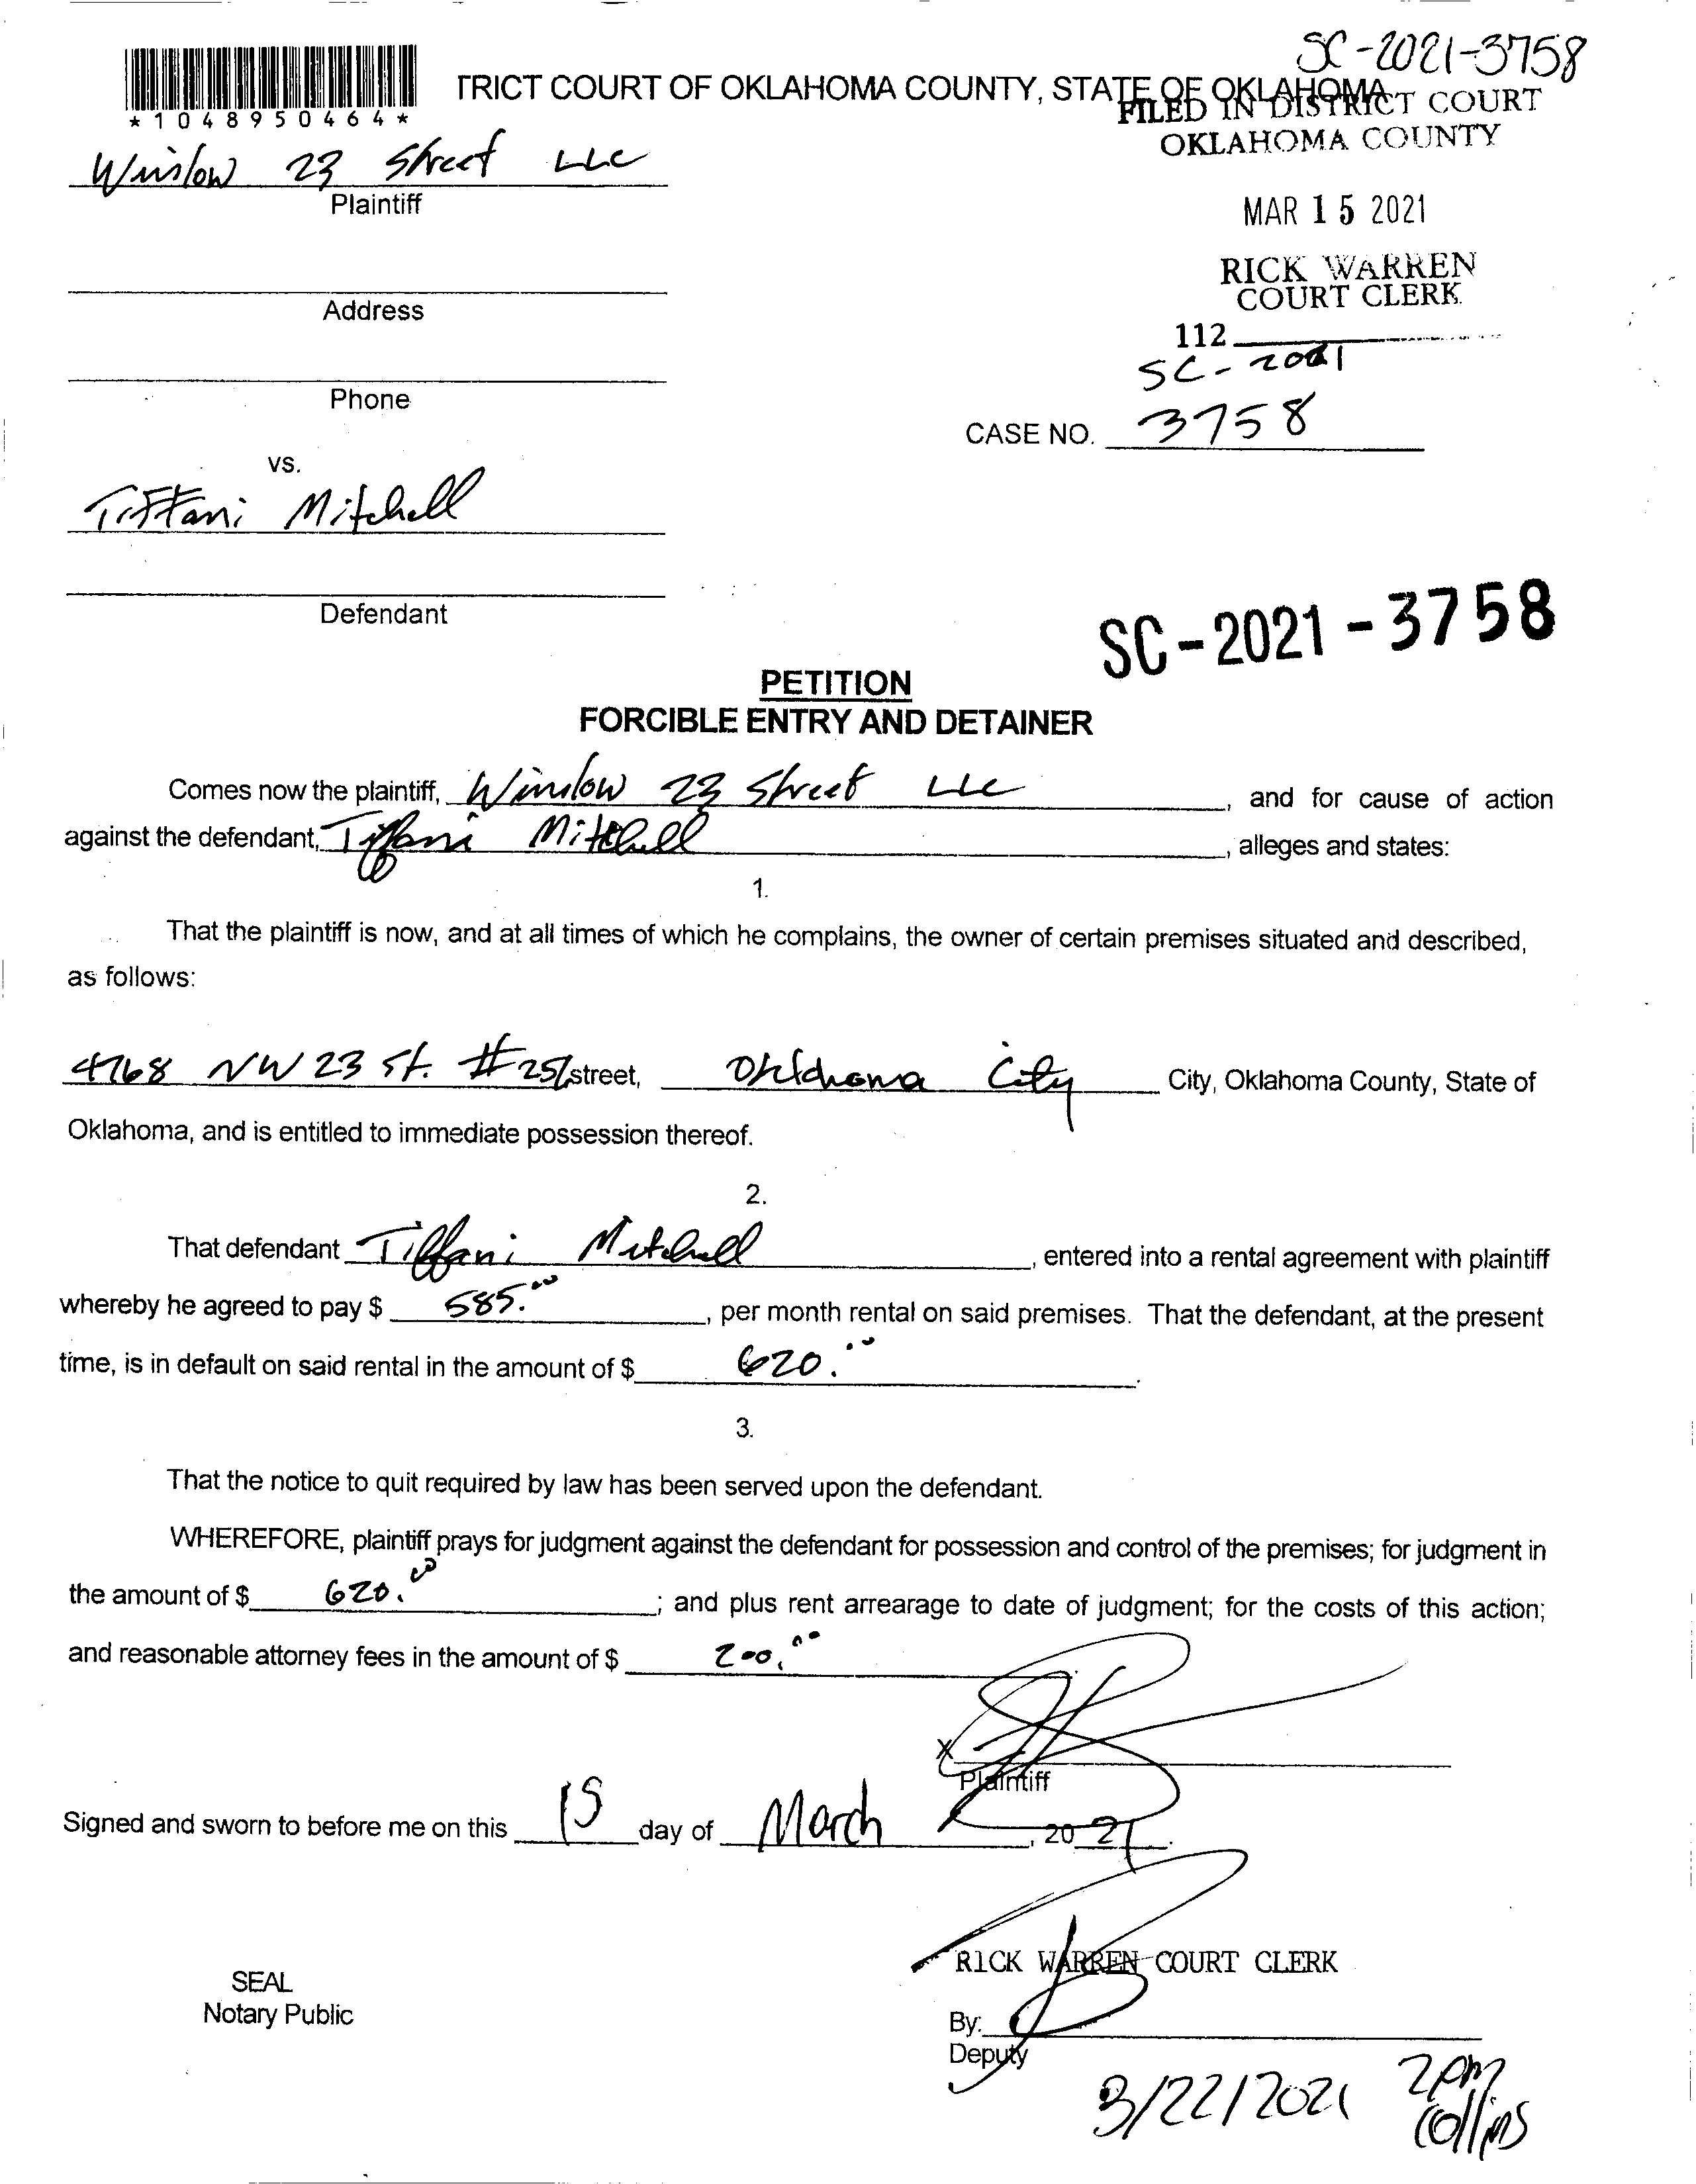 SC-2021-3758
TRICT COURT OF OKLAHOMA COUNTY, STATE OF OKLAHOMA
*1048950464*
FILED IN DISTRICT COURT
OKLAHOMA COUNTY
Winslow 23 Street LLC
Plaintiff
MAR 15 2021
RICK WARREN
COURT CLERK
Address
112
SC-2021
Phone
CASE NO. 3758
vs.
Tiffani Mitchell
Defendant
SC-2021-3758
PETITION
FORCIBLE ENTRY AND DETAINER
Comes now the plaintiff, Winslow 23 Street LLC, and for cause of action
against the defendant, Tiffani Mitchell, alleges and states:
1.
That the plaintiff is now, and at all times of which he complains, the owner of certain premises situated and described,
as follows:
4768 NW 23 St. #251 street, Oklahoma City City, Oklahoma County, State of
Oklahoma, and is entitled to immediate possession thereof.
2.
That defendant Tiffani Mitchell, entered into a rental agreement with plaintiff
whereby he agreed to pay $ 585.00, per month rental on said premises. That the defendant, at the present
time, is in default on said rental in the amount of $ 620.00.
3.
That the notice to quit required by law has been served upon the defendant.
WHEREFORE, plaintiff prays for judgment against the defendant for possession and control of the premises; for judgment in
the amount of $ 620.00; and plus rent arrearage to date of judgment; for the costs of this action;
and reasonable attorney fees in the amount of $ 200.00
X
Plaintiff
Signed and sworn to before me on this 15 day of March, 2021.
RICK WARREN COURT CLERK
SEAL
Notary Public
By:
Deputy
3/22/2021 2pm
Collins